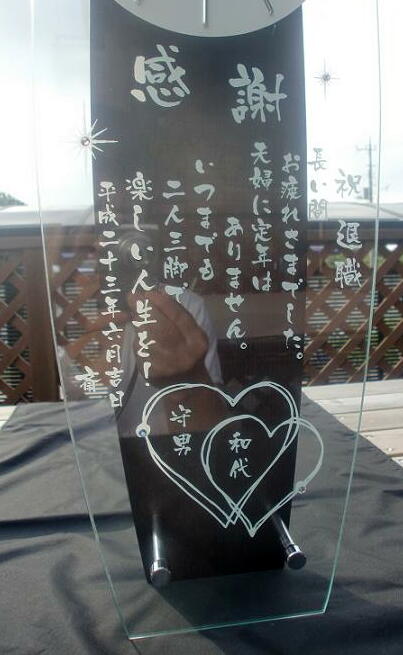 感謝
祝退職
長い間
お疲れさまでした。
夫婦に定年は
ありません。
いつまでも
二人三脚で
楽しい人生を!
平成二十三年六月吉日
和代
守男